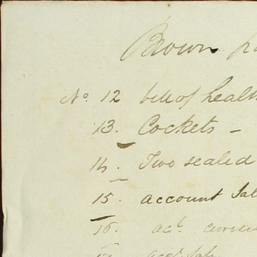 Brown
No. 12 bill of health
13. Cockets –
14. Two sealed
15. account Sal
16. act. curren